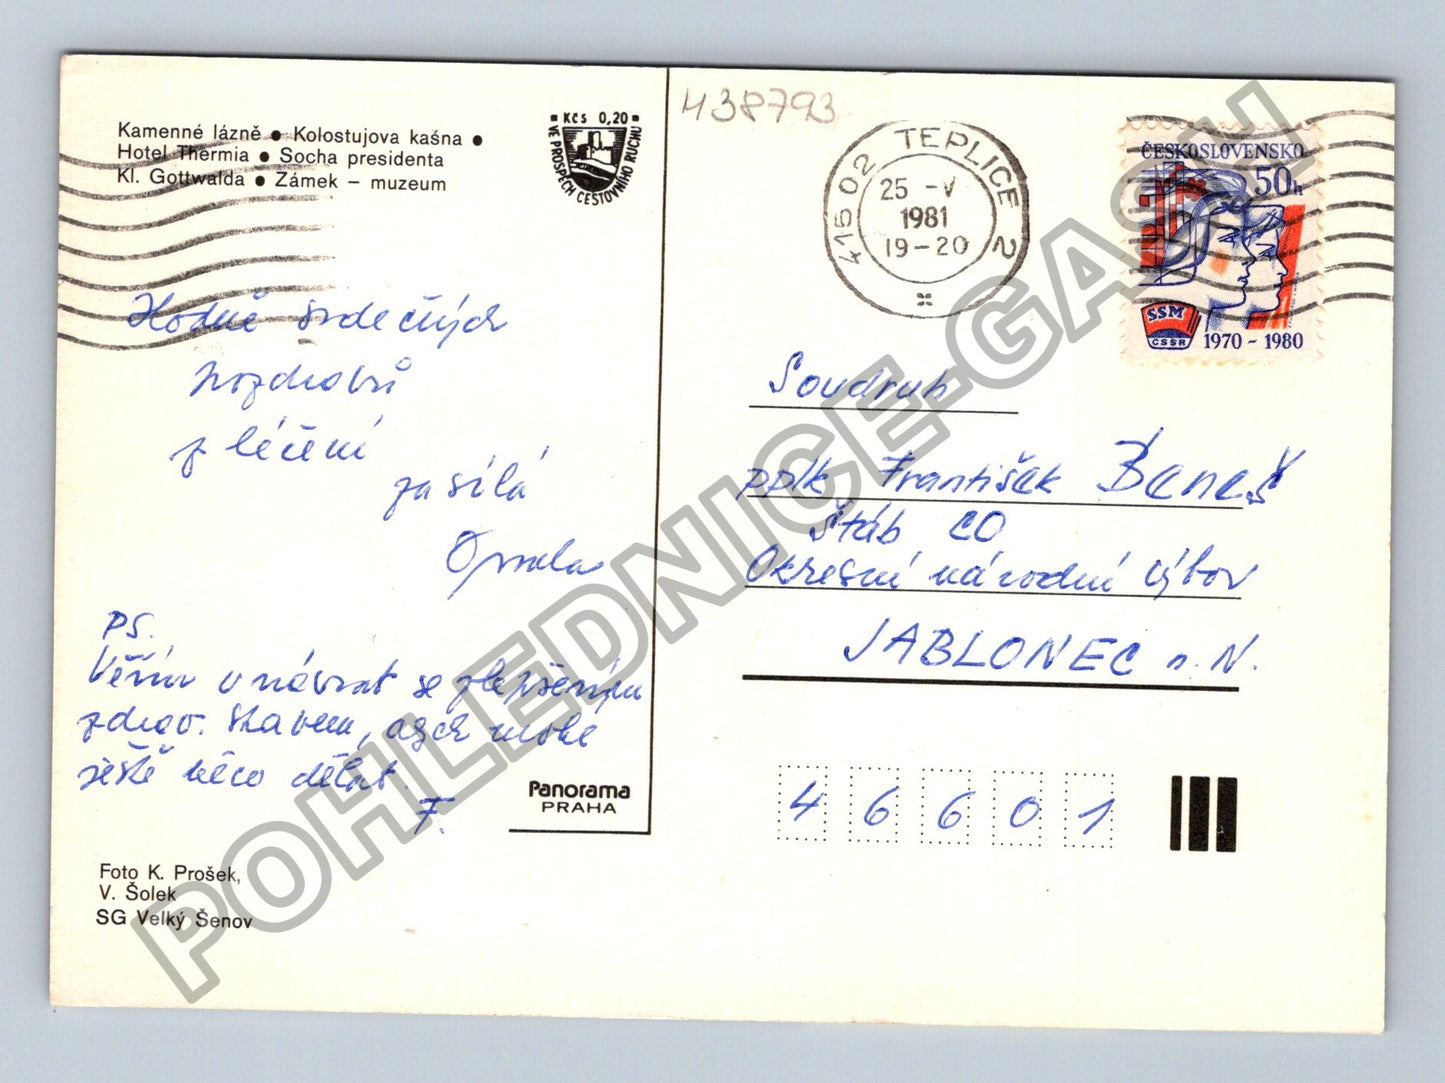 Kamenné lázně ● Kolostujova kašna ●
Hotel Thermia ● Socha presidenta
Kl. Gottwalda ● Zámek – muzeum
Kčs 0,20
VE PROSPĚCH CESTOVNÍHO RUCHU
438793
415 02 TEPLICE 2
25 -V
1981
19-20
ČESKOSLOVENSKO
50h
SSM
ČSSR
1970 - 1980
Hodně srdečných
pozdravů
z léčení
zasílá
PS.
Věřím v návrat se zlepšeným
zdrav. stavem, abych mohl
ještě něco dělat.
F.
Soudruh
pplk. František Beneš
Štáb CO
Okresní národní výbor
JABLONEC n. N.
46601
Panorama
PRAHA
Foto K. Prošek,
V. Šolek
SG Velký Šenov
POHLEDNICE-GASH